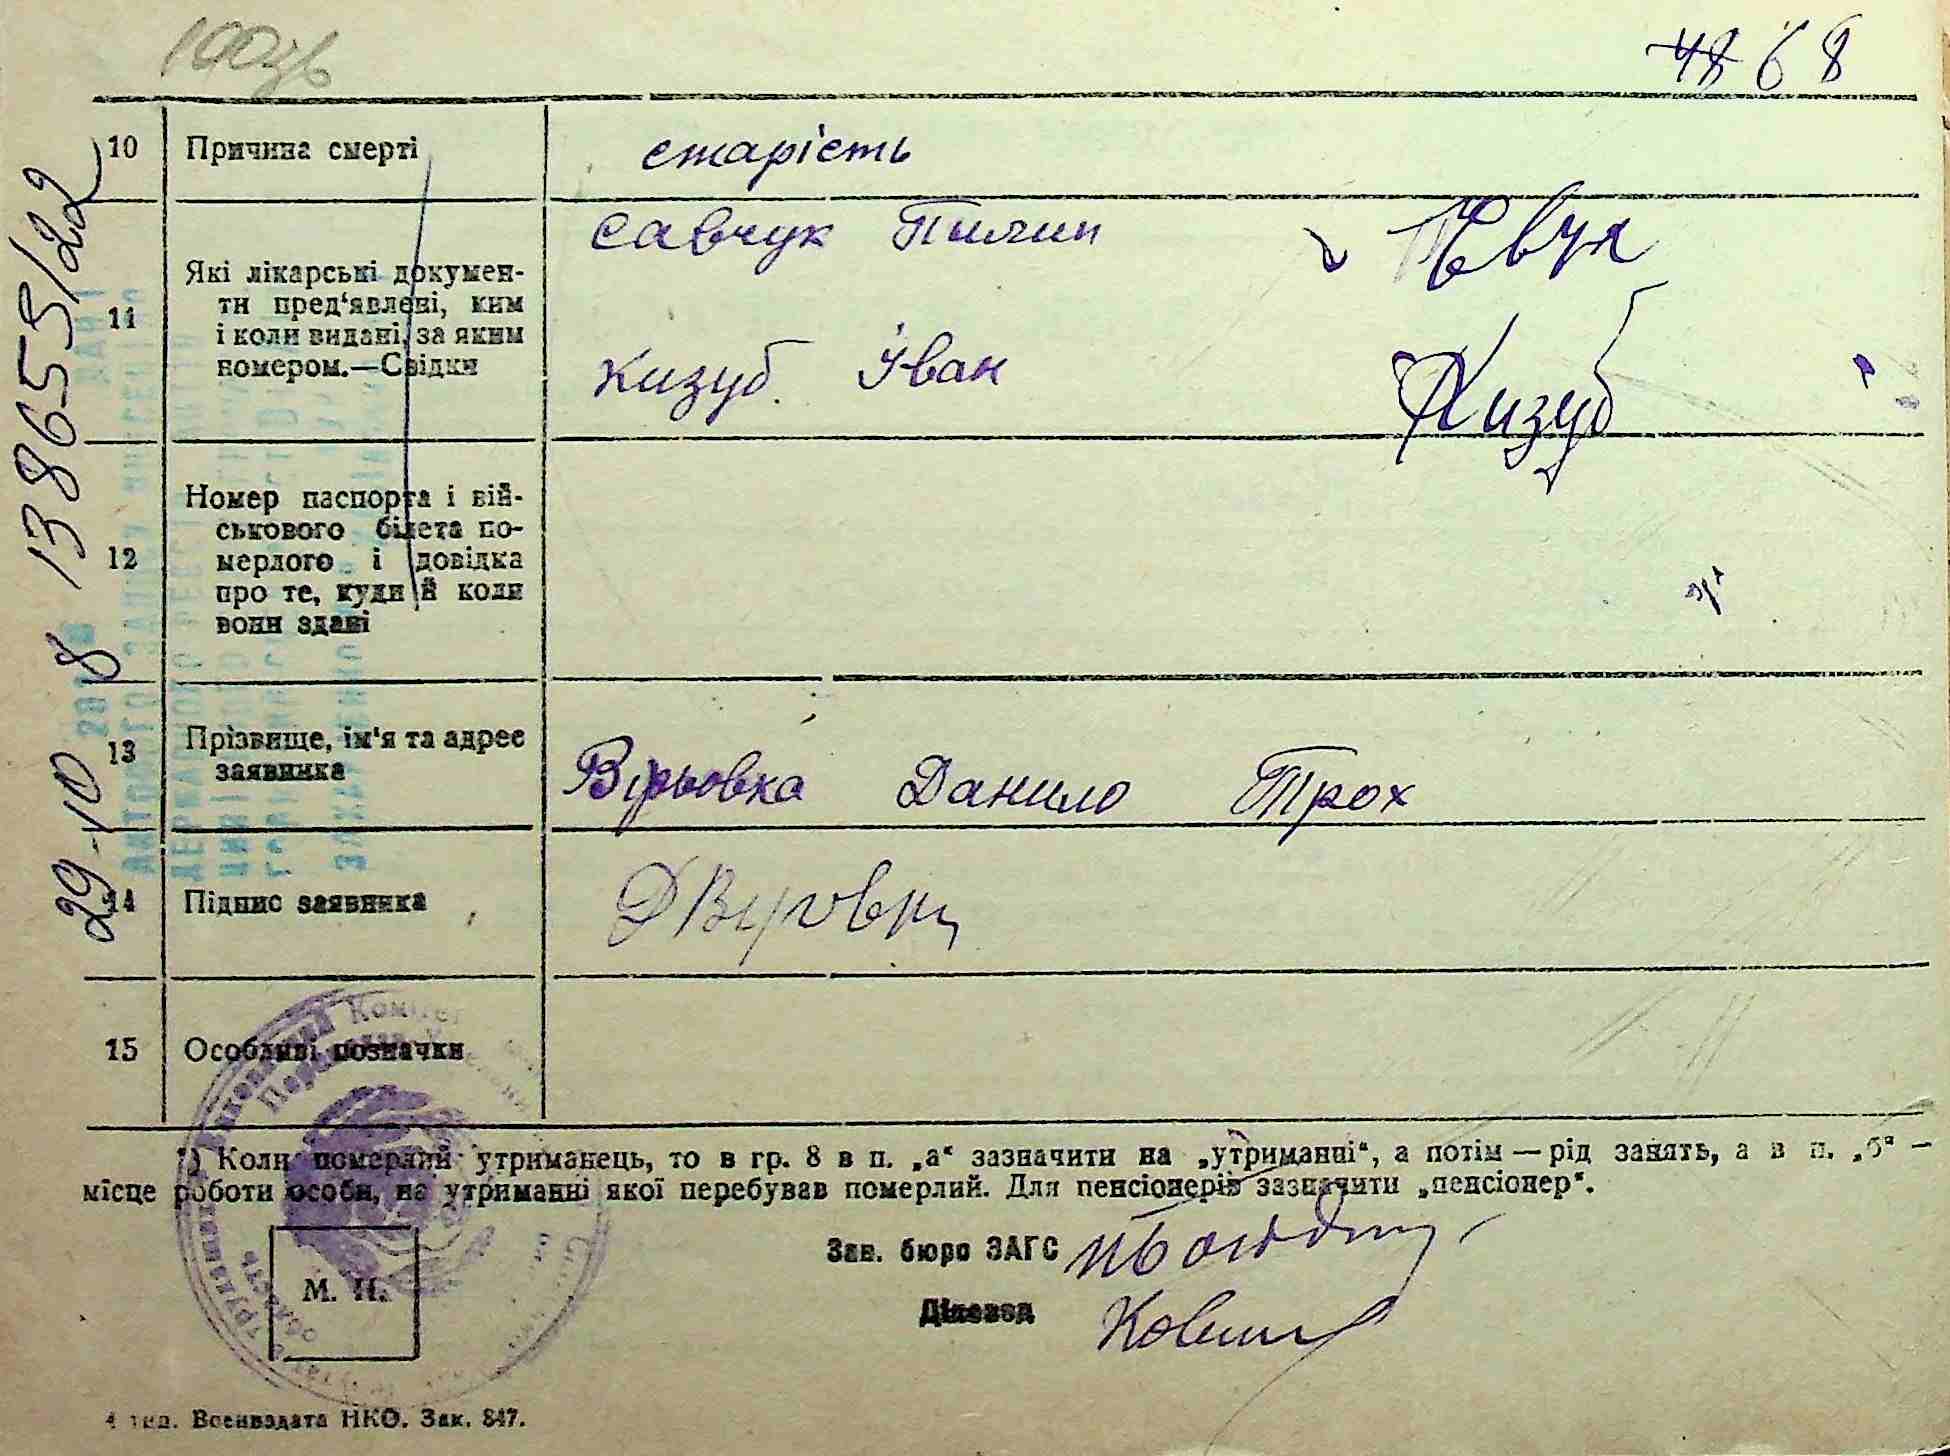 68
10 Причина смерті старість
11 Які лікарські докумен-
ти пред'явлені, ким
і коли видані, за яким
номером.—Свідки
Савчук Пилип
Кизуб Іван Кизуб
12 Номер паспорта і вій-
ськового білета по-
мерлого і довідка
про те, куди й коли
вони здані
13 Прізвище, ім'я та адрес
заявника
Вірьовка Данило Трох
14 Підпис заявника
15 Особливі позначки
1) Коли померлий утриманець, то в гр. 8 в п. „а“ зазначити на „утриманні“, а потім — рід занять, а в п. „б“ —
місце роботи особи, на утриманні якої перебував померлий. Для пенсіонерів зазначити „пенсіонер“.
Зав. бюро ЗАГС
М. П.
Діловод
4 тип. Воениздата НКО. Зак. 847.
29-10 8 138655/22